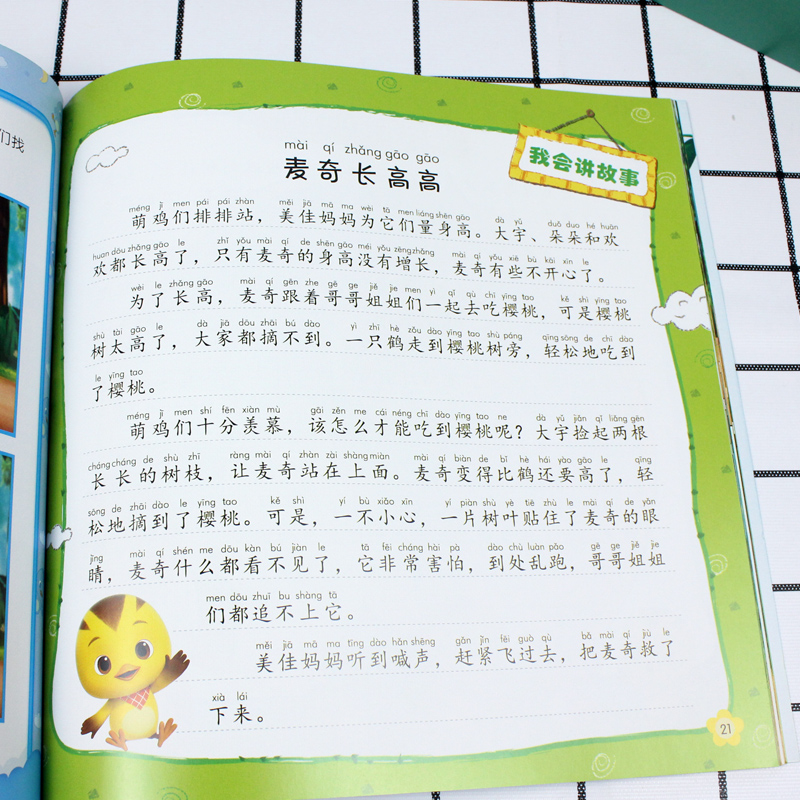 们找
我会讲故事
mài qí zhǎng gāo gāo
麦奇长高高
méng jī men pái pái zhàn měi jiā mā ma wèi tā men liáng shēn gāo dà yǔ duǒ duo hé huān
萌鸡们排排站，美佳妈妈为它们量身高。大宇、朵朵和欢
huan dōu zhǎng gāo le zhǐ yǒu mài qí de shēn gāo méi yǒu zēng zhǎng mài qí yǒu xiē bù kāi xīn le
欢都长高了，只有麦奇的身高没有增长，麦奇有些不开心了。
wèi le zhǎng gāo mài qí gēn zhe gē ge jiě jie men yì qǐ qù chī yīng tao kě shì yīng tao
为了长高，麦奇跟着哥哥姐姐们一起去吃樱桃，可是樱桃
shù tài gāo le dà jiā dōu zhāi bú dào yì zhī hè zǒu dào yīng tao shù páng qīng sōng de chī dào
树太高了，大家都摘不到。一只鹤走到樱桃树旁，轻松地吃到
le yīng tao
了樱桃。
méng jī men shí fēn xiàn mù gāi zěn me cái néng chī dào yīng tao ne dà yǔ jiǎn qǐ liǎng gēn
萌鸡们十分羡慕，该怎么才能吃到樱桃呢？大宇捡起两根
cháng cháng de shù zhī ràng mài qí zhàn zài shàng miàn mài qí biàn de bǐ hè hái yào gāo le qīng
长长的树枝，让麦奇站在上面。麦奇变得比鹤还要高了，轻
sōng de zhāi dào le yīng tao kě shì yí bù xiǎo xīn yí piàn shù yè tiē zhù le mài qí de yǎn
松地摘到了樱桃。可是，一不小心，一片树叶贴住了麦奇的眼
jīng mài qí shén me dōu kàn bú jiàn le tā fēi cháng hài pà dào chù luàn pǎo gē ge jiě jie
睛，麦奇什么都看不见了，它非常害怕，到处乱跑，哥哥姐姐
men dōu zhuī bu shàng tā
们都追不上它。
měi jiā mā ma tīng dào hǎn shēng gǎn jǐn fēi guò qù bǎ mài qí jiù le
美佳妈妈听到喊声，赶紧飞过去，把麦奇救了
xià lái
下来。
21